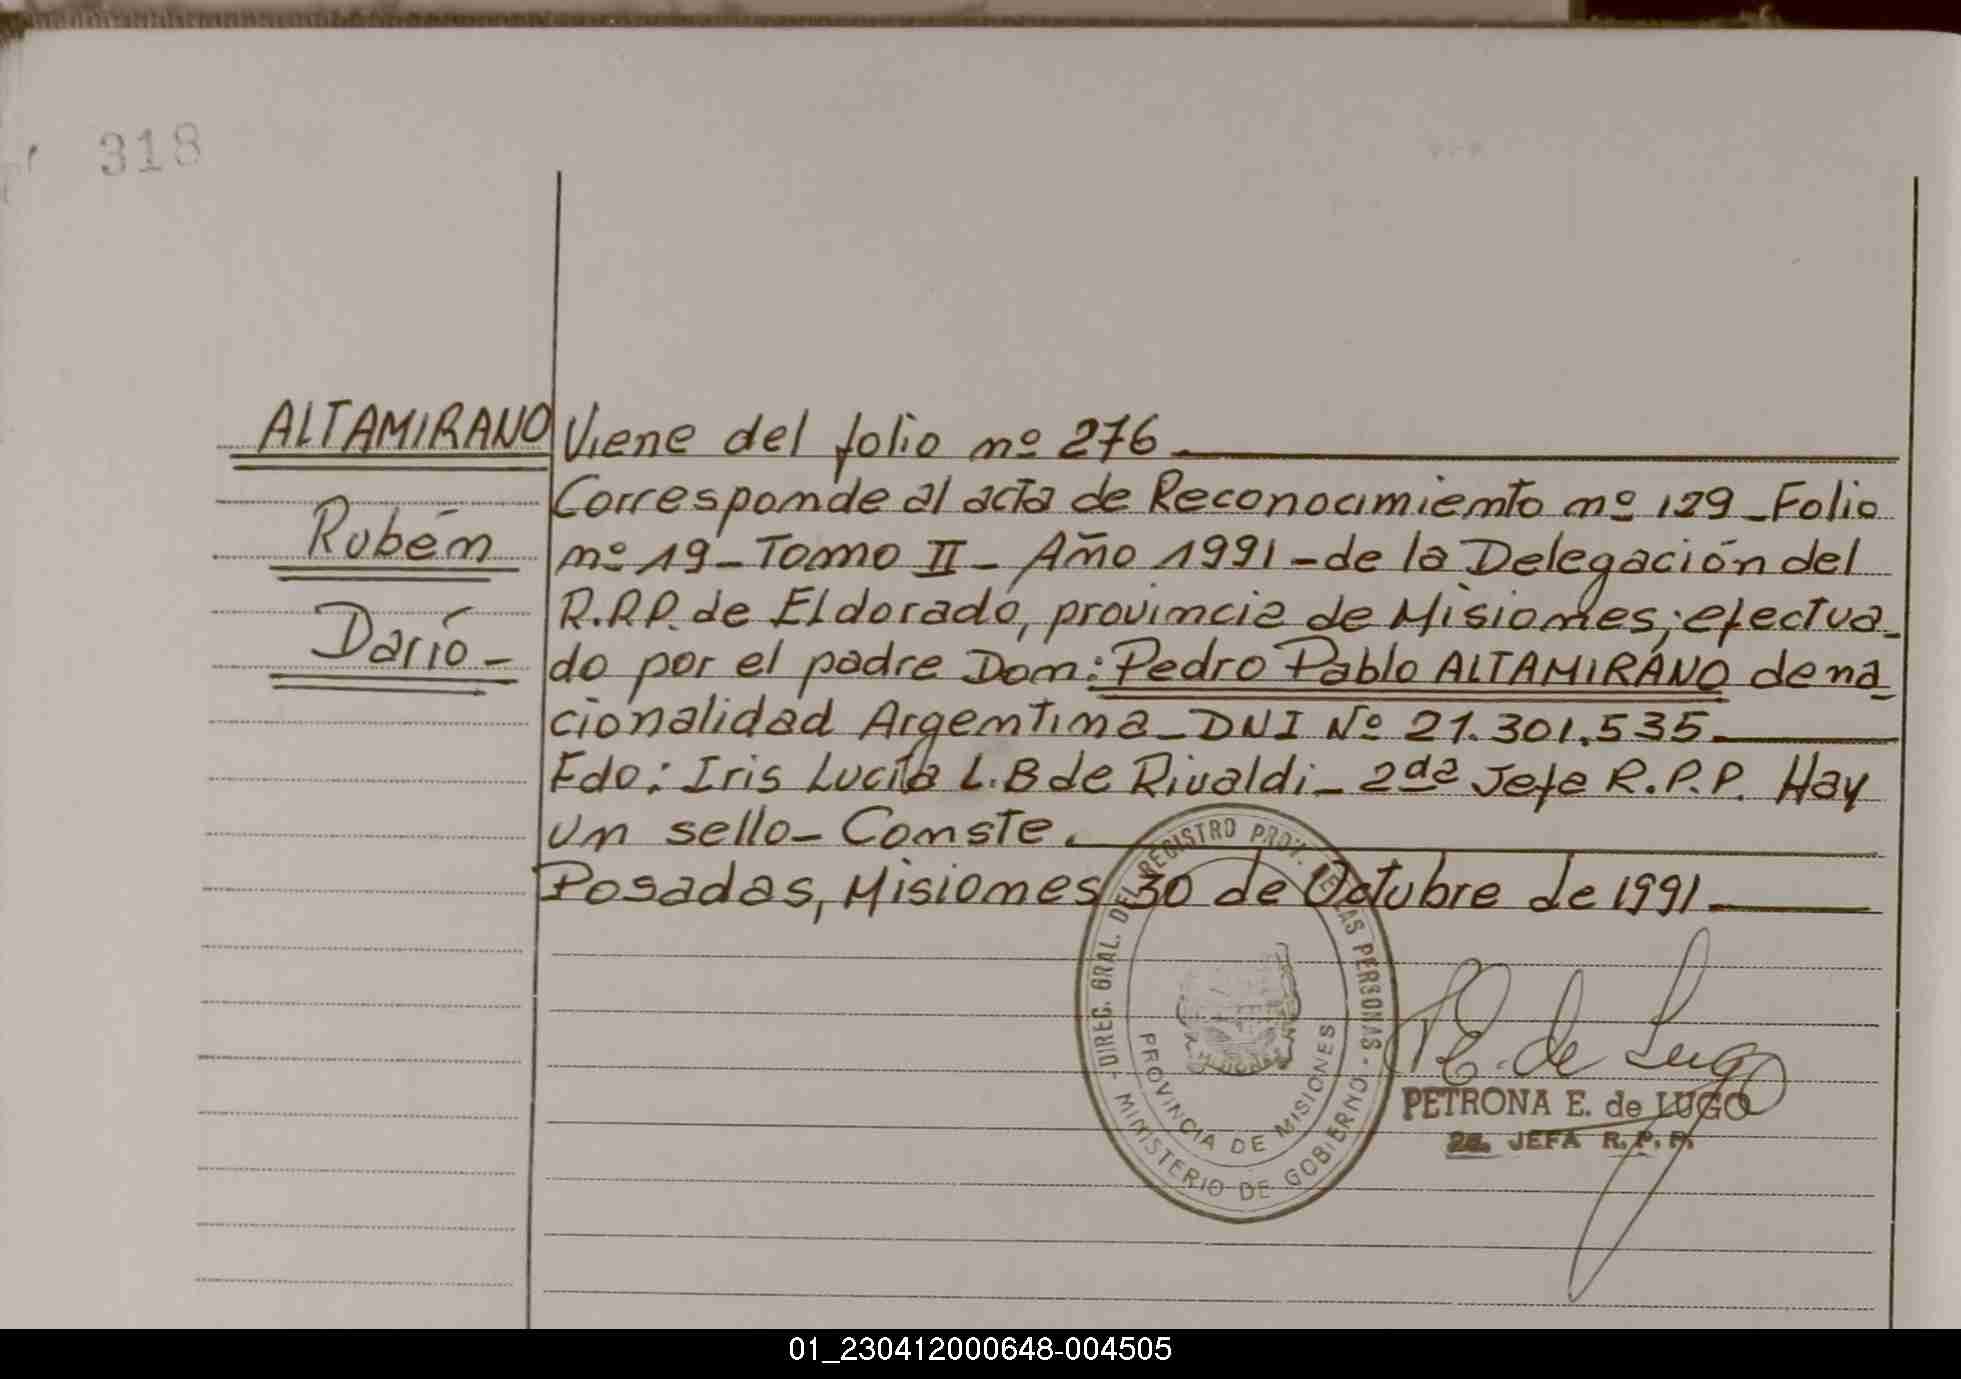 318
ALTAMIRANO
Rubén
Darío-
Viene del folio nº 276.
Corresponde al acta de Reconocimiento nº 129-Folio
nº 19-Tomo II- Año 1991-de la Delegación del
R.P.P. de Eldorado, provincia de Misiones; efectua-
do por el padre Don: Pedro Pablo ALTAMIRANO de na-
cionalidad Argentina-DNI Nº 21.301.535.
Fdo: Iris Lucía L.B de Rivaldi- 2da Jefe R.P.P. Hay
un sello-Conste.
Posadas, Misiones 30 de Octubre de 1991.
DIREC. GRAL. DEL REGISTRO PROV. DE LAS PERSONAS
- MINISTERIO DE GOBIERNO -
PROVINCIA DE MISIONES
P.E. de Lugo
PETRONA E. de LUGO
2a. JEFA R.P.P.
01_230412000648-004505